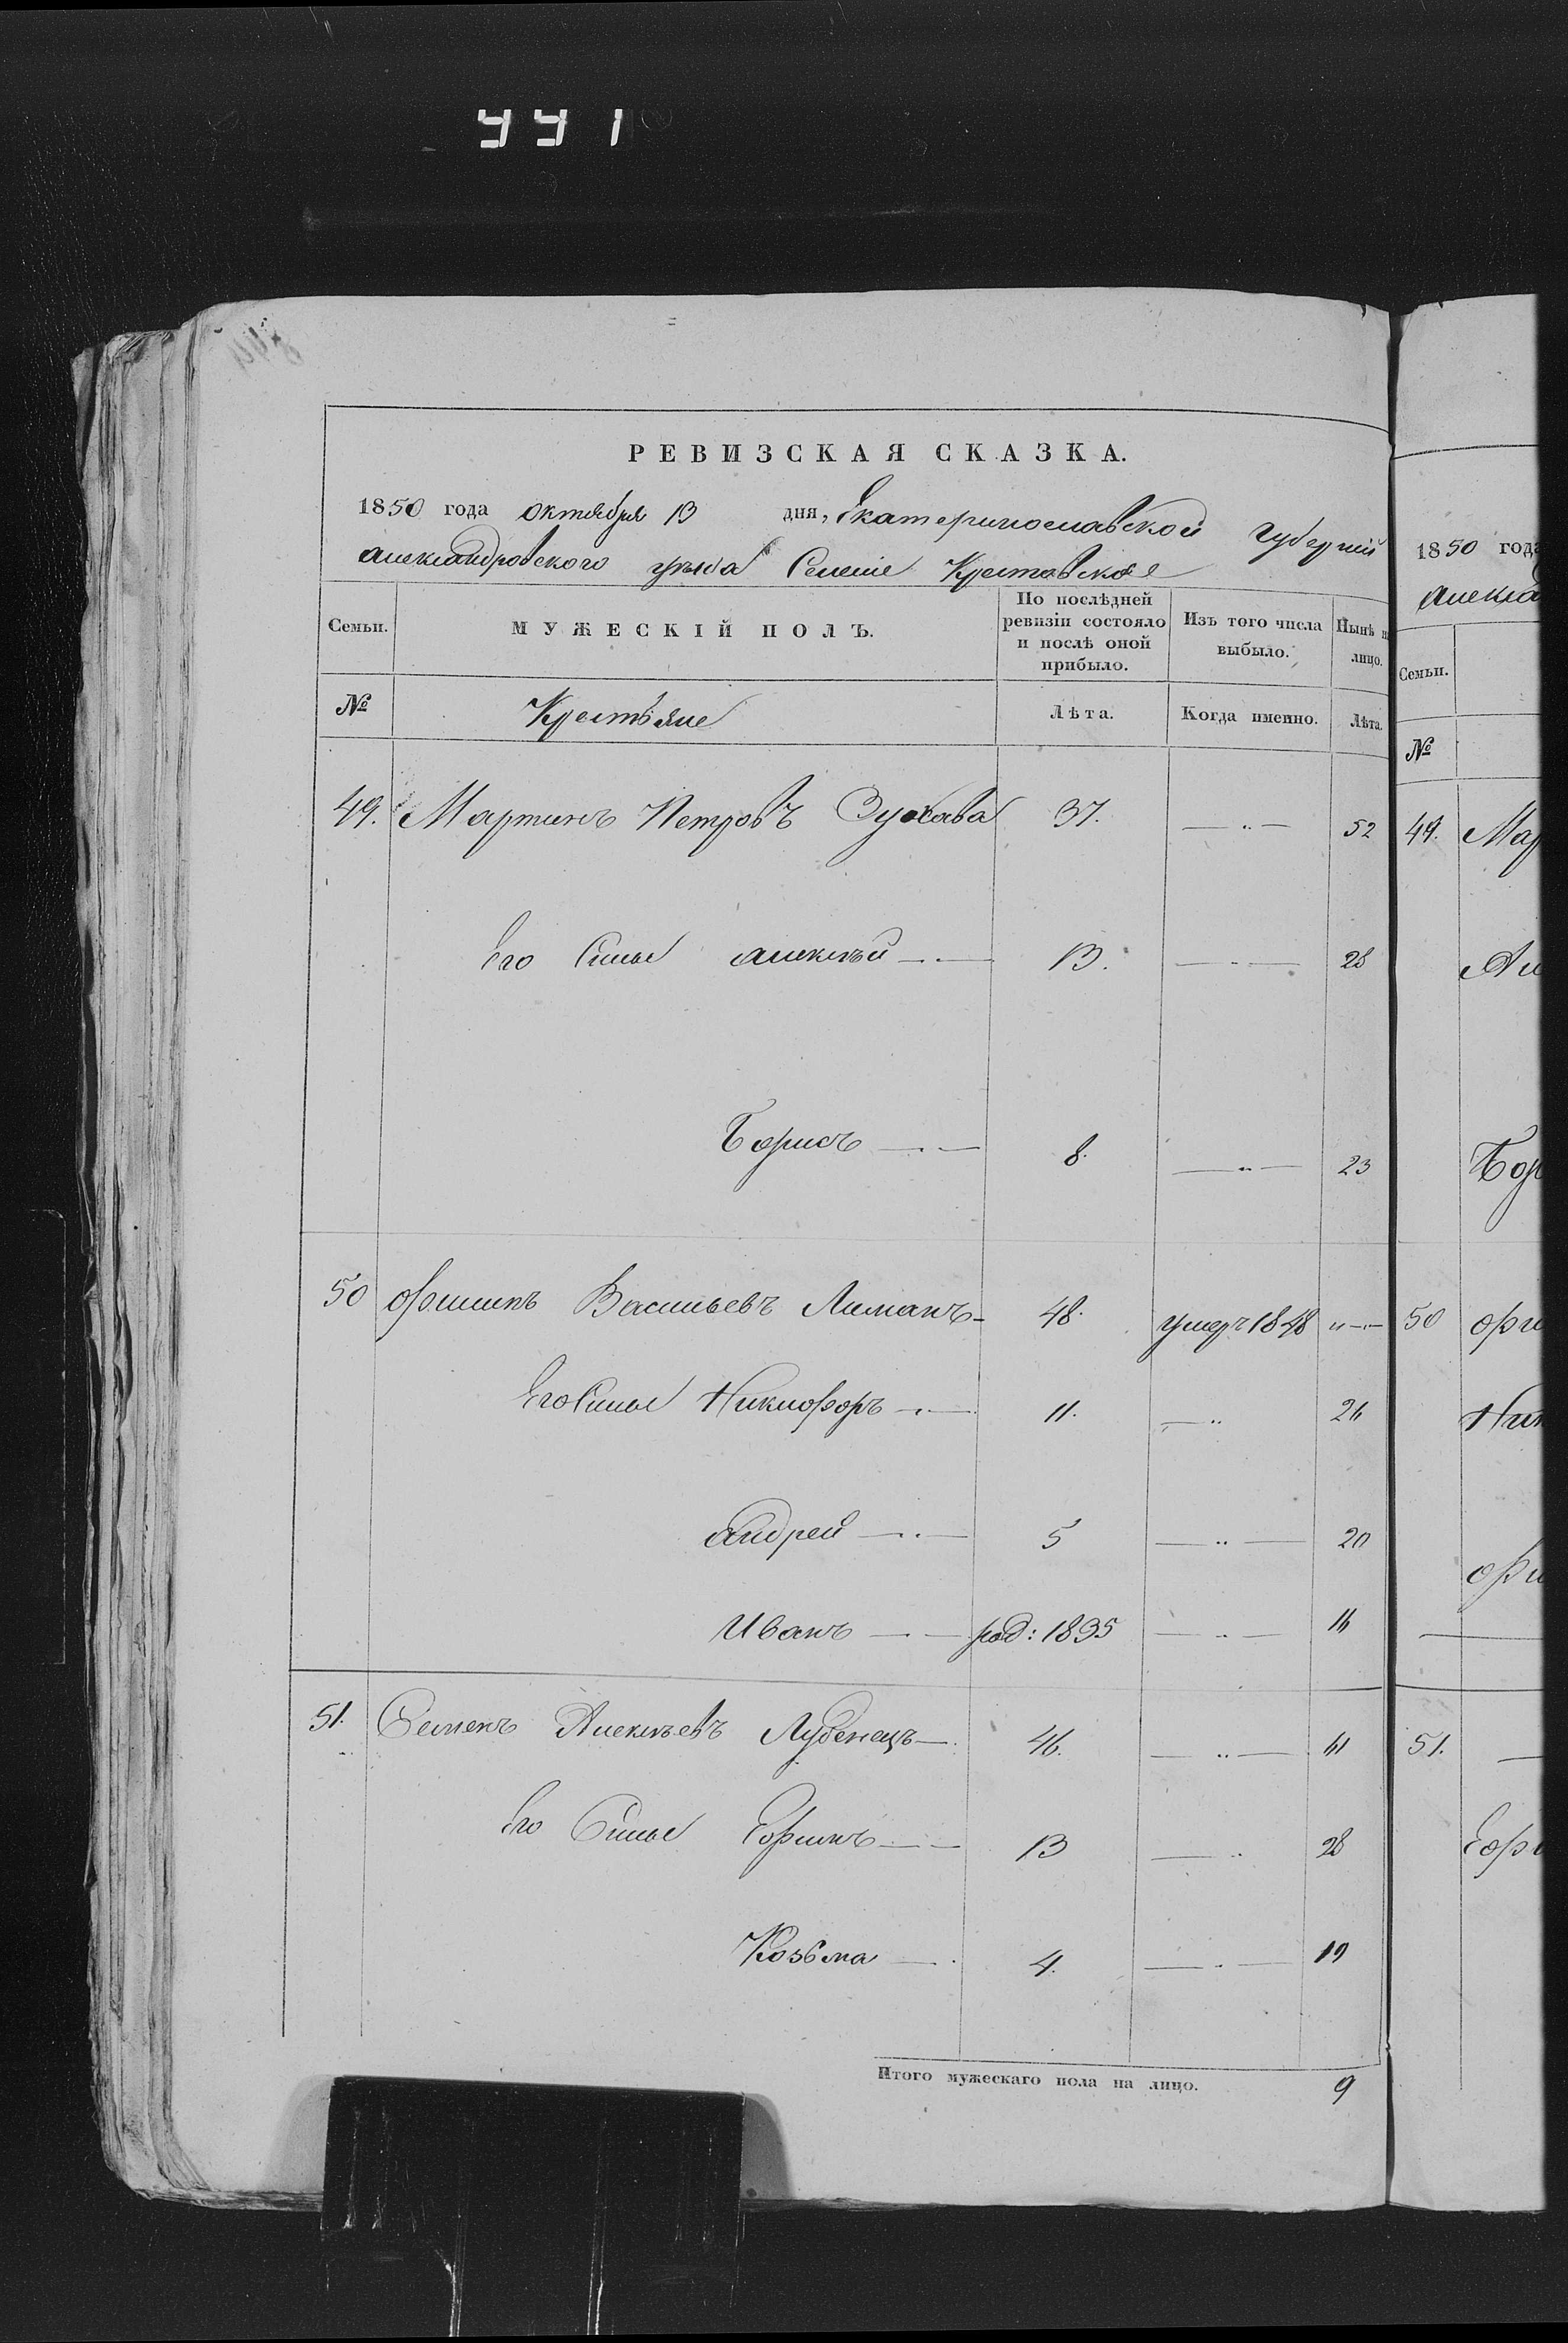 РЕВИЗСКАЯ СКАЗКА.
1850 года октября 13 дня, Екатеринославской Губерніи
Александровского уезда Селеніе Крестовское
Семьи. МУЖЕСКІЙ ПОЛЪ. По послѣдней ревизіи состояло и послѣ оной прибыло. Изъ того числа выбыло. Нынѣ н лицо.
№ Крестьяне Лѣта. Когда именно. Лѣта.
49. Мартинъ Петровъ 37. —„— 52
Его Сины Алексѣй —„— 13. —„— 28
Борисъ —„— 8. —„— 23
50 Филипъ Васильевъ Лиманъ — 48. умеръ 1848 „—„—
Его Сины Никифоръ —„— 11. —„ 26
Андрей —„— 5 —„— 20
Иванъ —„— род: 1835 —„— 16
51. Семенъ Алексѣевъ Лубенецъ — 46. —„— 61
Его Сины Ефимъ —„— 13 —„ 28
Козьма —„ 4. —„— 19
Итого мужескаго пола на лицо. 9
1850 года
Алекса
Семьи.
№
49. Мар
Але
Бор
50 Фи
Ник
Фи
51. —
Ефи